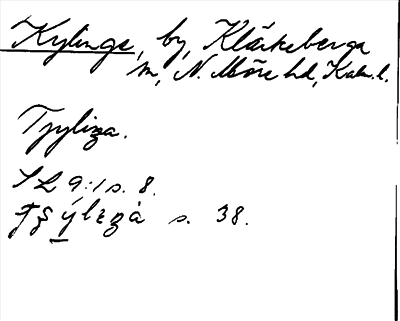 Kylinge, by, Kläckeberga
sn, N. Möre hd, Kalm. l.
Tyylinga.
SL 9:1 s. 8.
s. 38.